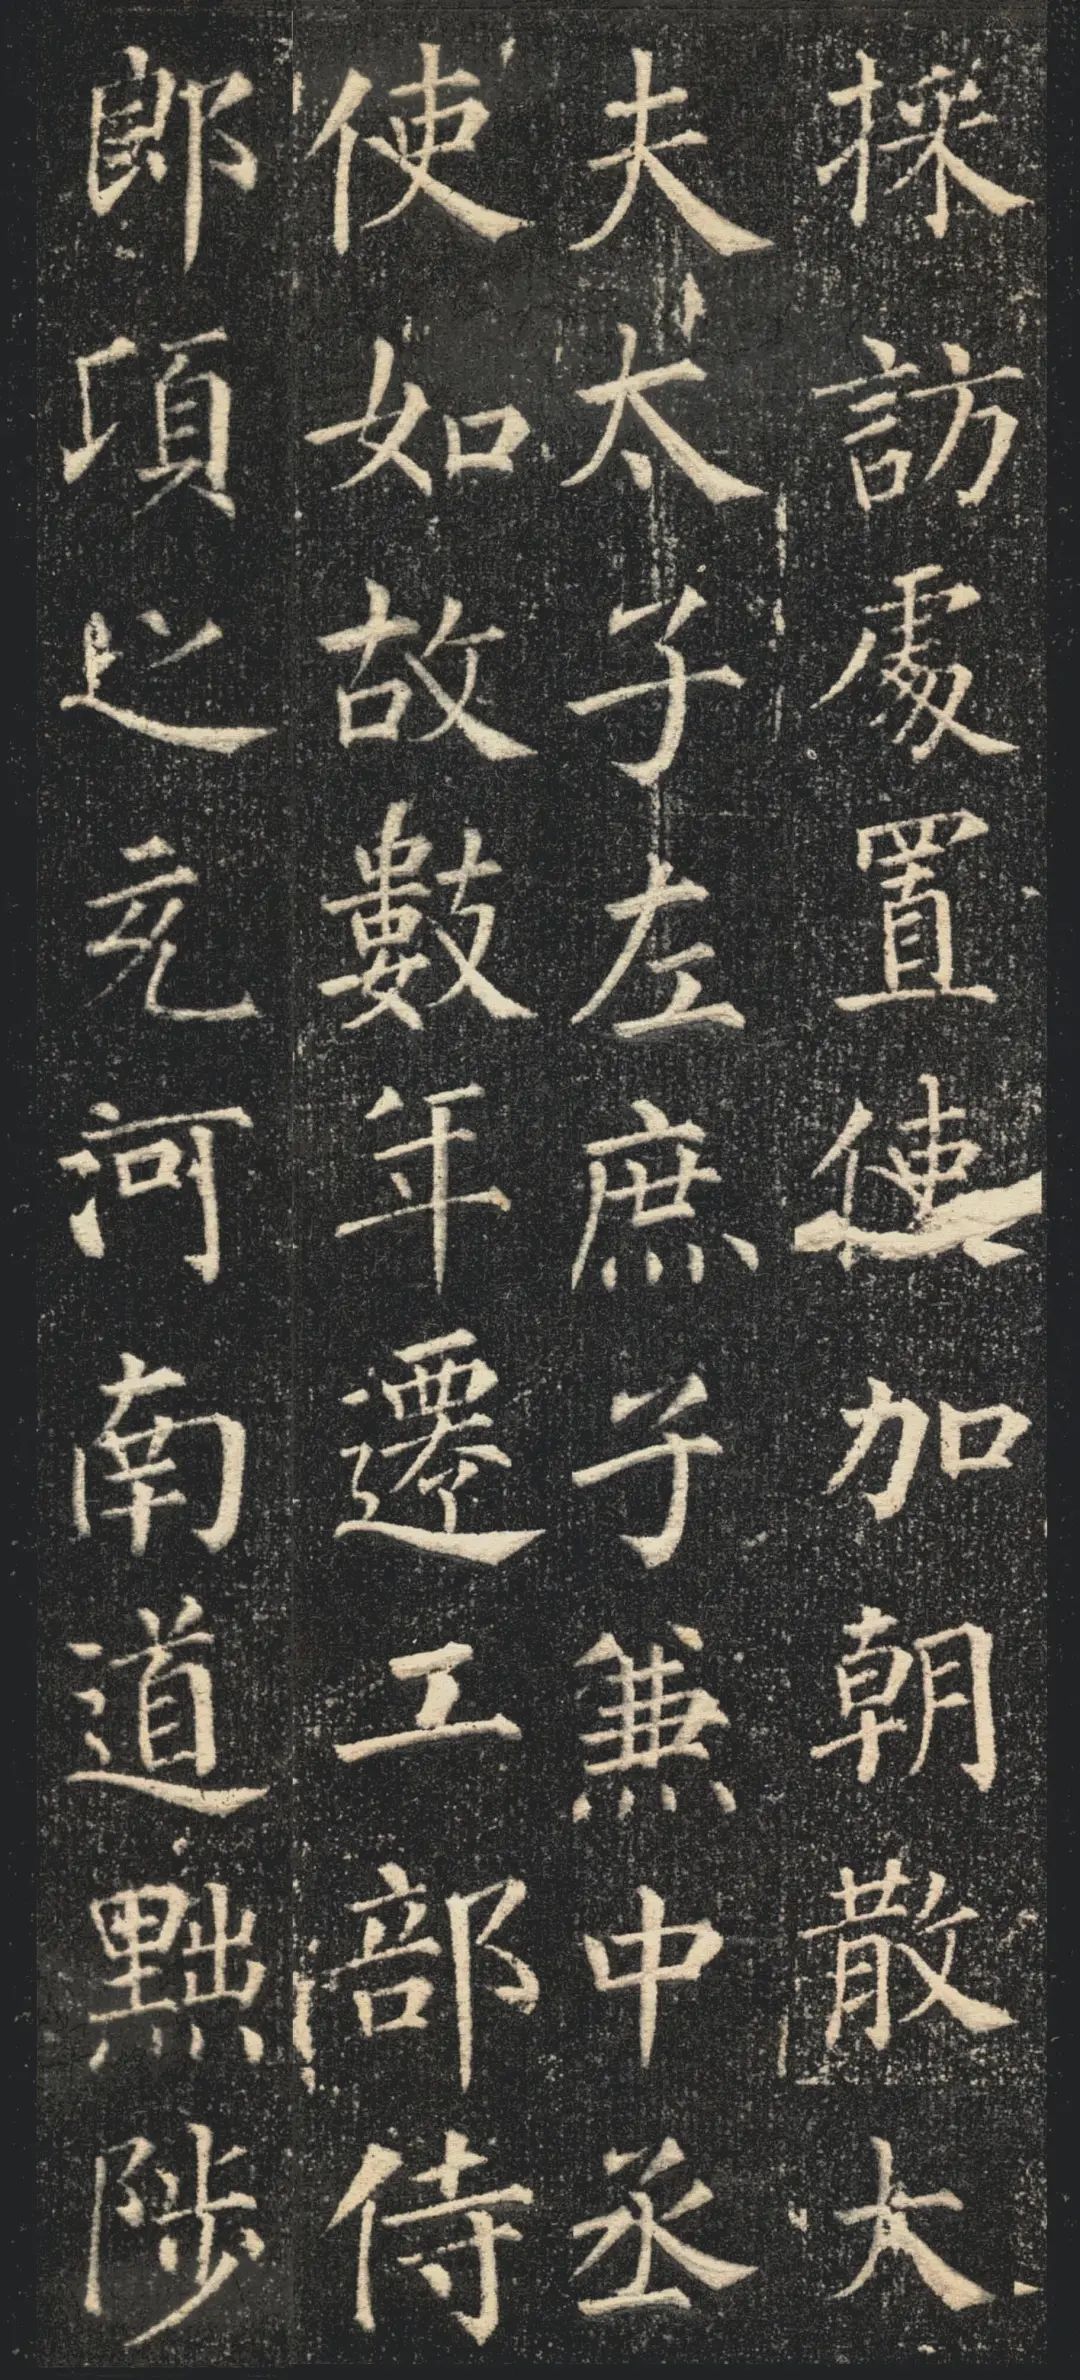 採訪處置使加朝散大
夫太子左庶子兼中丞
使如故數年遷工部侍
郎頃之充河南道黜陟